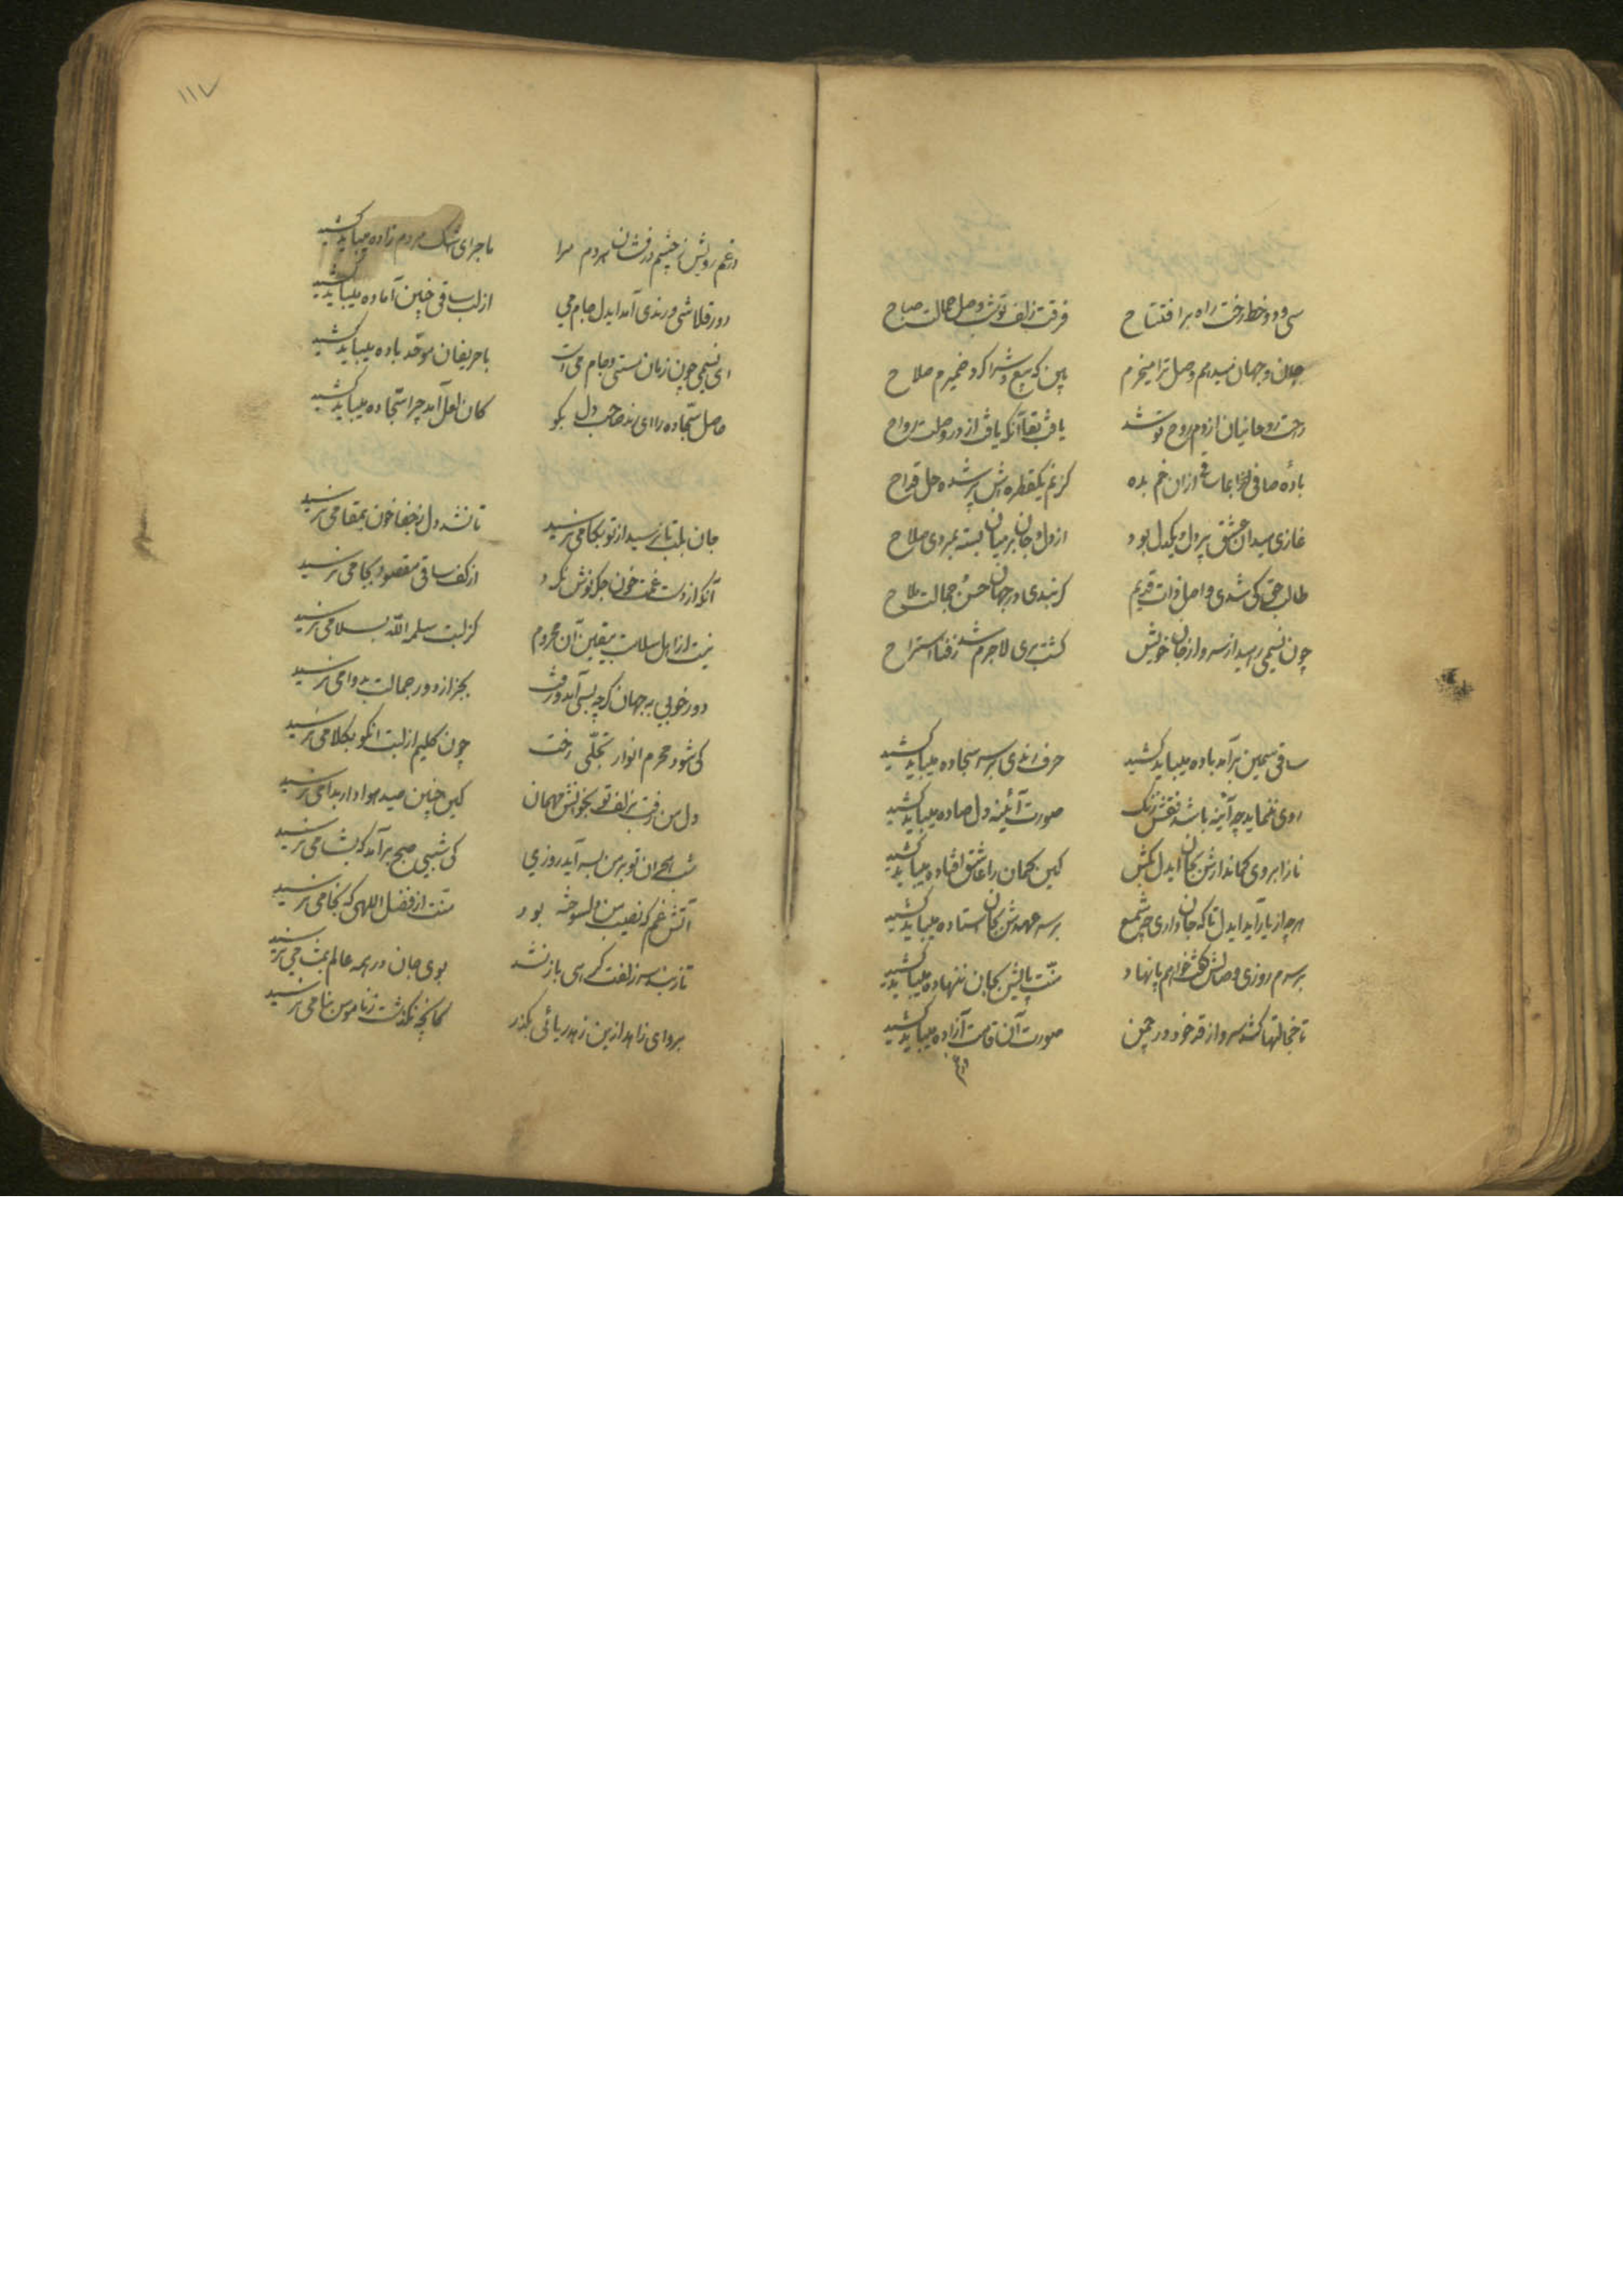 سی و دو خط رخت راه برا فتتاح فرقت زلف تو شب وصل جمالت صباح
جان و جهان میدهم وصل ترا میخرم بین که بیع و شرا کرد ضمیرم صلاح
رحت روحانیان از دم روح تو شد یافت بقا آنکه یافت از در وصلت رواح
بادهٔ صافی لقوا بما ساقی ازان خم بده کز نم یکقطره اش پر شده حل قداح
غازی میدان عشق پر دل و یکدل بود از دل و جان بر میان بسته بمردی صلاح
طالب حق کی شدی واصل ذات قدیم گر نبدی در جهان حسن و جمالت ملاح
چون نسیمی رهید از سر و از جان خویش گشت بری لاجرم شد ز فنا استراح
ساقی سیمین بر آمد باده میباید کشید حرف رندی بر سر سجاده میباید کشید
روی ننماید چو آئینه باشد نقش زنگ صورت آئینه دل صاده میباید کشید
ناز ابروی کماندارش بجان ایدل بکش کین کمان را عاشق افتاده میباید کشید
هرچه از یار آید ایدل تا که جان داری چو شمع بر سر عهدش بجان استاده میباید کشید
بر سرم روزی وصالش گفت خواهم پا نهاد منت پایش بجان ننهاده میباید کشید
تا خجالتها کشد سرو از قد خود در چمن صورت آن قامت آزاده میباید کشید
در غم
۱۱۷
در غم رویش ز چشم درفشان هر دم مرا ماجرای اشک مردم زاده میباید کشید
دور قلاشی و رندی آمد ایدل جام می از لب ساقی چنین آماده میباید کشید
ای نسیمی چون زمان مستی و جام می است با حریفان موحد باده میباید کشید
حاصل سجاده را ای رند صاحب دل بگو کان لعل آمد چرا سجاده میباید کشید
جان بلب تا نرسید از تو بکامی نرسید تا نشد دل ز جفا خون بمقامی نرسید
آنکو از دست غمت خون جگر نوش نکرد از کف ساقی مقصود بجامی نرسید
نیست از اهل سلامت بیقین آن محروم کز لبت سلمه الله بسلامی نرسید
دور خوبی به جهان گرچه بسی آمد و رفت بجز از دور جمالت بدوامی نرسید
کی شود محرم انوار تجلّی رخت چون کلیم از لبت آنکو بکلامی نرسید
دل من رفت بزلف تو بخوانش مهمان کین چنین صید هوادار بدامی نرسید
شب هجران تو بر من بسر آید روزی کی شبی صبح بر آمد که بشامی نرسید
آتش غم که نصیب من دلسوخته بود منت از فضل اللهی که بخامی نرسید
تا ز بند سر زلفت گرهی باز نشد بوی جان در همه عالم بمشامی نرسید
برو ای زاهد ازین زهد ریائی بگذر کانچه نگذشت ز ناموس بنامی نرسید